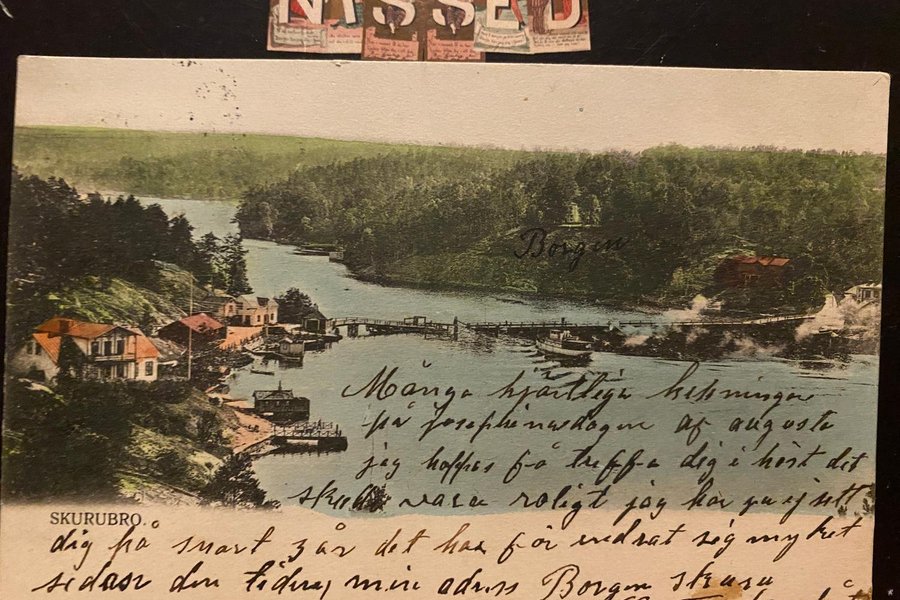 NISSED
Borgen
Många hjärtliga helsningar
på josephinadagen af augusta
jag hoppas få träffa dig i höst det
skulle vara roligt jag har ju ej sett
SKURUBRO.
dig på snart 3 år det har för endrat sig myket
sedan den tiden, min adress Borgen skuru